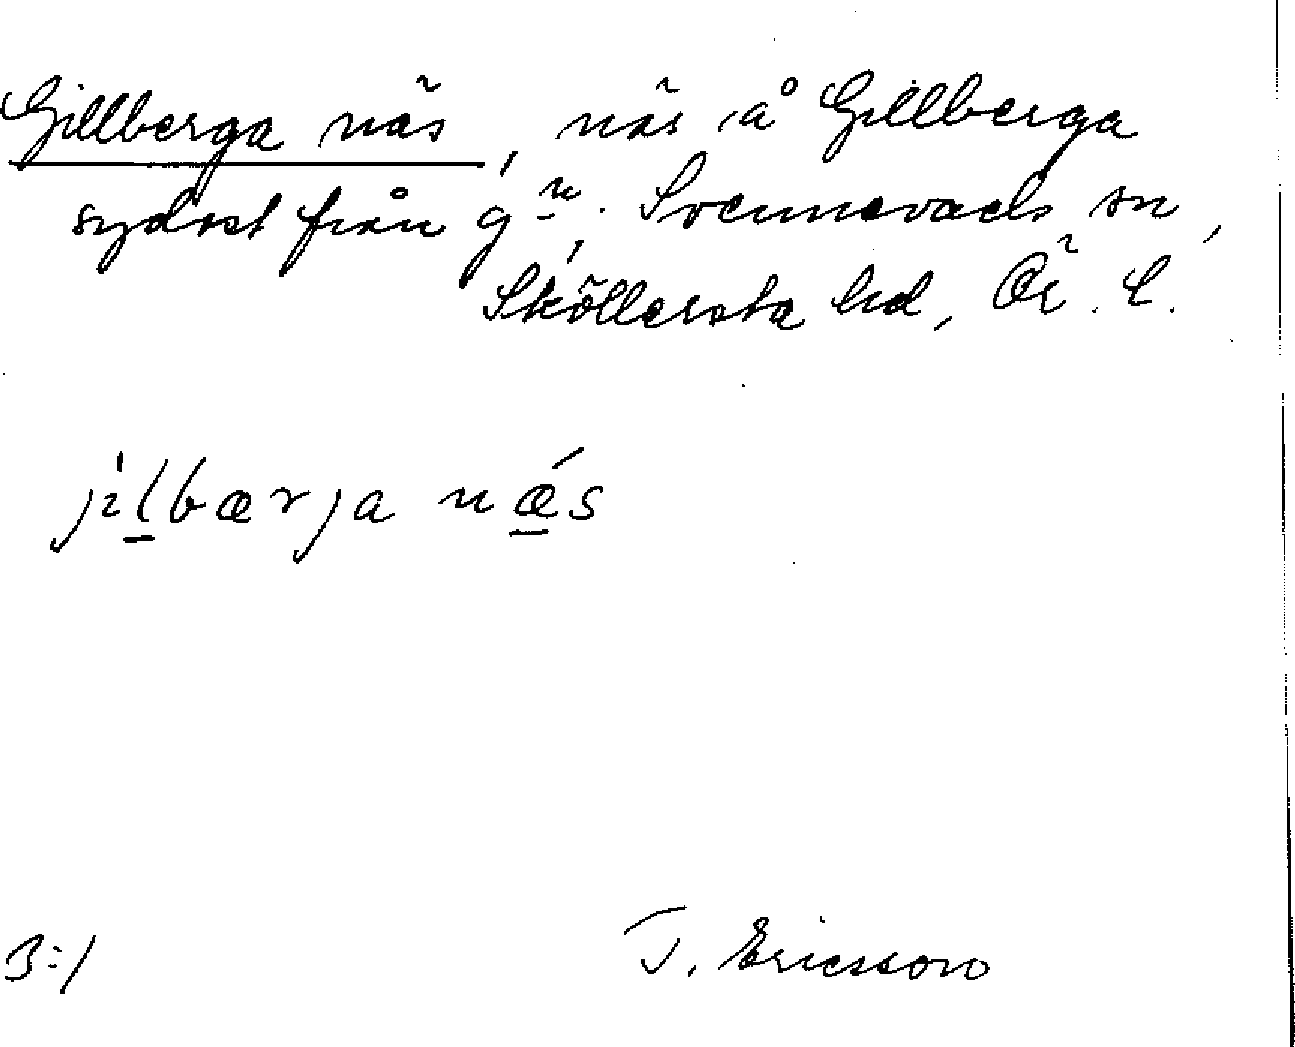 Gillberga näs, näs å Gillberga
sydost från gn. Svennevads sn,
Sköllersta hd, Ör. l.
jìlbærja nǽs
3:1
T. Ericsson